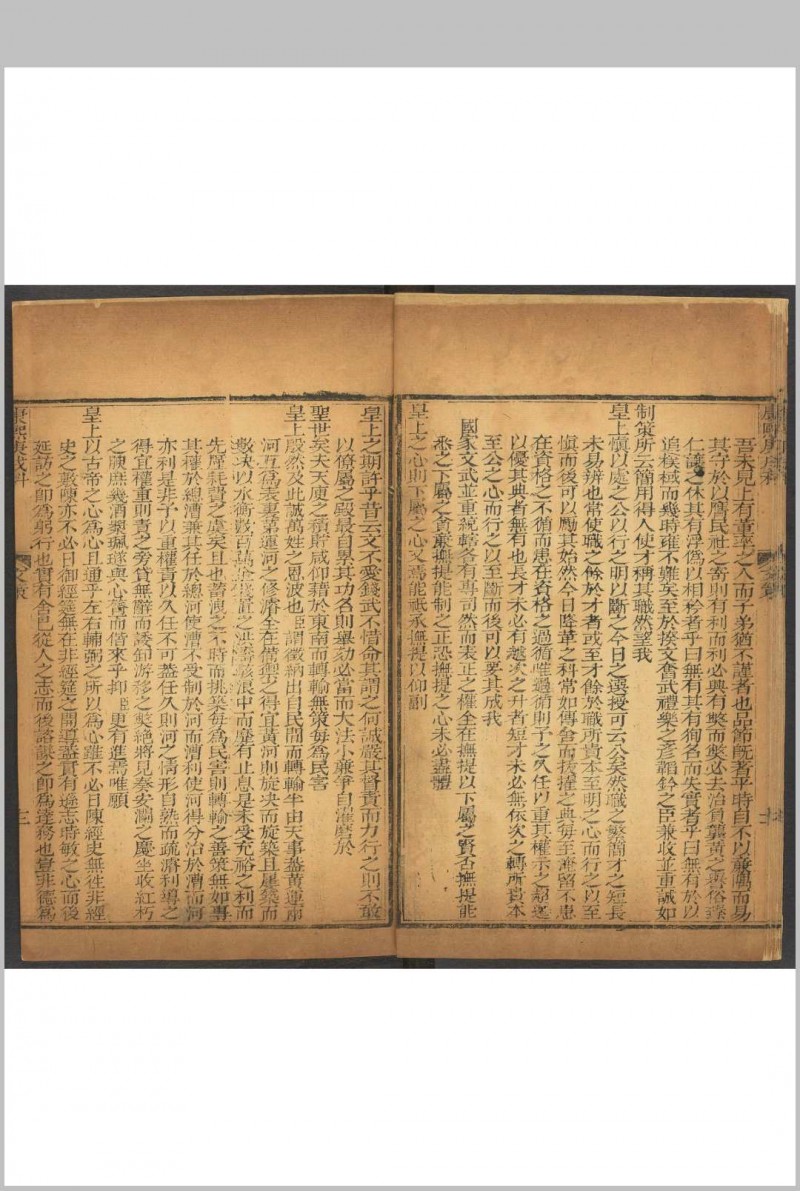 康熙庚戌科
吾未見上有董率之人而子弟猶不謹者也品節既著乎時自不以兼嘱而易
其守於以膺民社之寄則有利而利必興有獘而獘必去治負龔黃之譽俗臻
仁讓之休其有浮偽以相矜者乎曰無有其有狥名而失實者乎曰無有於以
追棫樸而幾時雍不難矣至於揆文奮武禮樂之彥韜鈐之臣兼收並重誠如
制策所云簡用得人使才稱其職然望我
皇上慎以處之公以行之明以斷之今日之選授可云公矣然職之繁簡才之短長
未易辨也常使職之餘於才者或至才餘於職所貴本至明之心而行之以至
慎而後可以勵其始然今日陞華之科常如傳舍而拔擢之典每至淹留不患
在資格之不循而患在資格之過循唯過循則予之久任以重其權示之超遷
以優其典者無有也長才未必有越次之升者短才未必無依次之轉所貴本
至公之心而行之以至斷而後可以要其成我
國家文武並重統轄各有專司然而表正之權全在撫提以下屬之賢否撫提能
悉之下屬之貪廉撫提能制之正恐撫提之心未必盡體
皇上之心則下屬之心又焉能祇承撫提以仰副
皇上之期許乎昔云文不愛錢武不惜命其謂之何誠嚴其督責而力行之則不敢
以僚屬之殿最自累其功名則舉劾必當而大法小廉爭自濯磨於
聖世矣夫天庾之積貯咸仰藉於東南而轉輸無策每為民害
皇上殷然及此誠萬姓之恩波也臣謂徵納出自民間而轉輸半由天事蓋黃運兩
河互為表裏第運河之修濬全在備禦之得宜黃河則旋決而旋築且屢築而
數決以水衡數百萬金錢託之洪濤駭浪中而靡有止息是未受充裕之利而
先罹耗費之虞矣且也蓄洩之不時而排築每為民害則轉輸之善策無如專
其權於總漕兼其任於總河使漕不受制於河而漕利使河得分治於漕而河
亦利是非予以重權責以久任不可蓋任久則河之情形自熟而疏濬利導之
得宜權重則責之旁貸無辭而諉卸游移之獘絕將見奏安瀾之慶坐收紅朽
之陳庶幾酒漿珮璲與心禱而偕來乎抑臣更有進焉唯願
皇上以古帝之心為心且通乎左右輔弼之所以為心雖不必日陳經史無徃非經
史之敷陳亦不必日御經筵無在非經筵之開導蓋實有遜志時敏之心而後
延訪之卽為躬行也實有舍已從人之志而後諮諏之卽為達務也豈非德為
康熙庚戌科